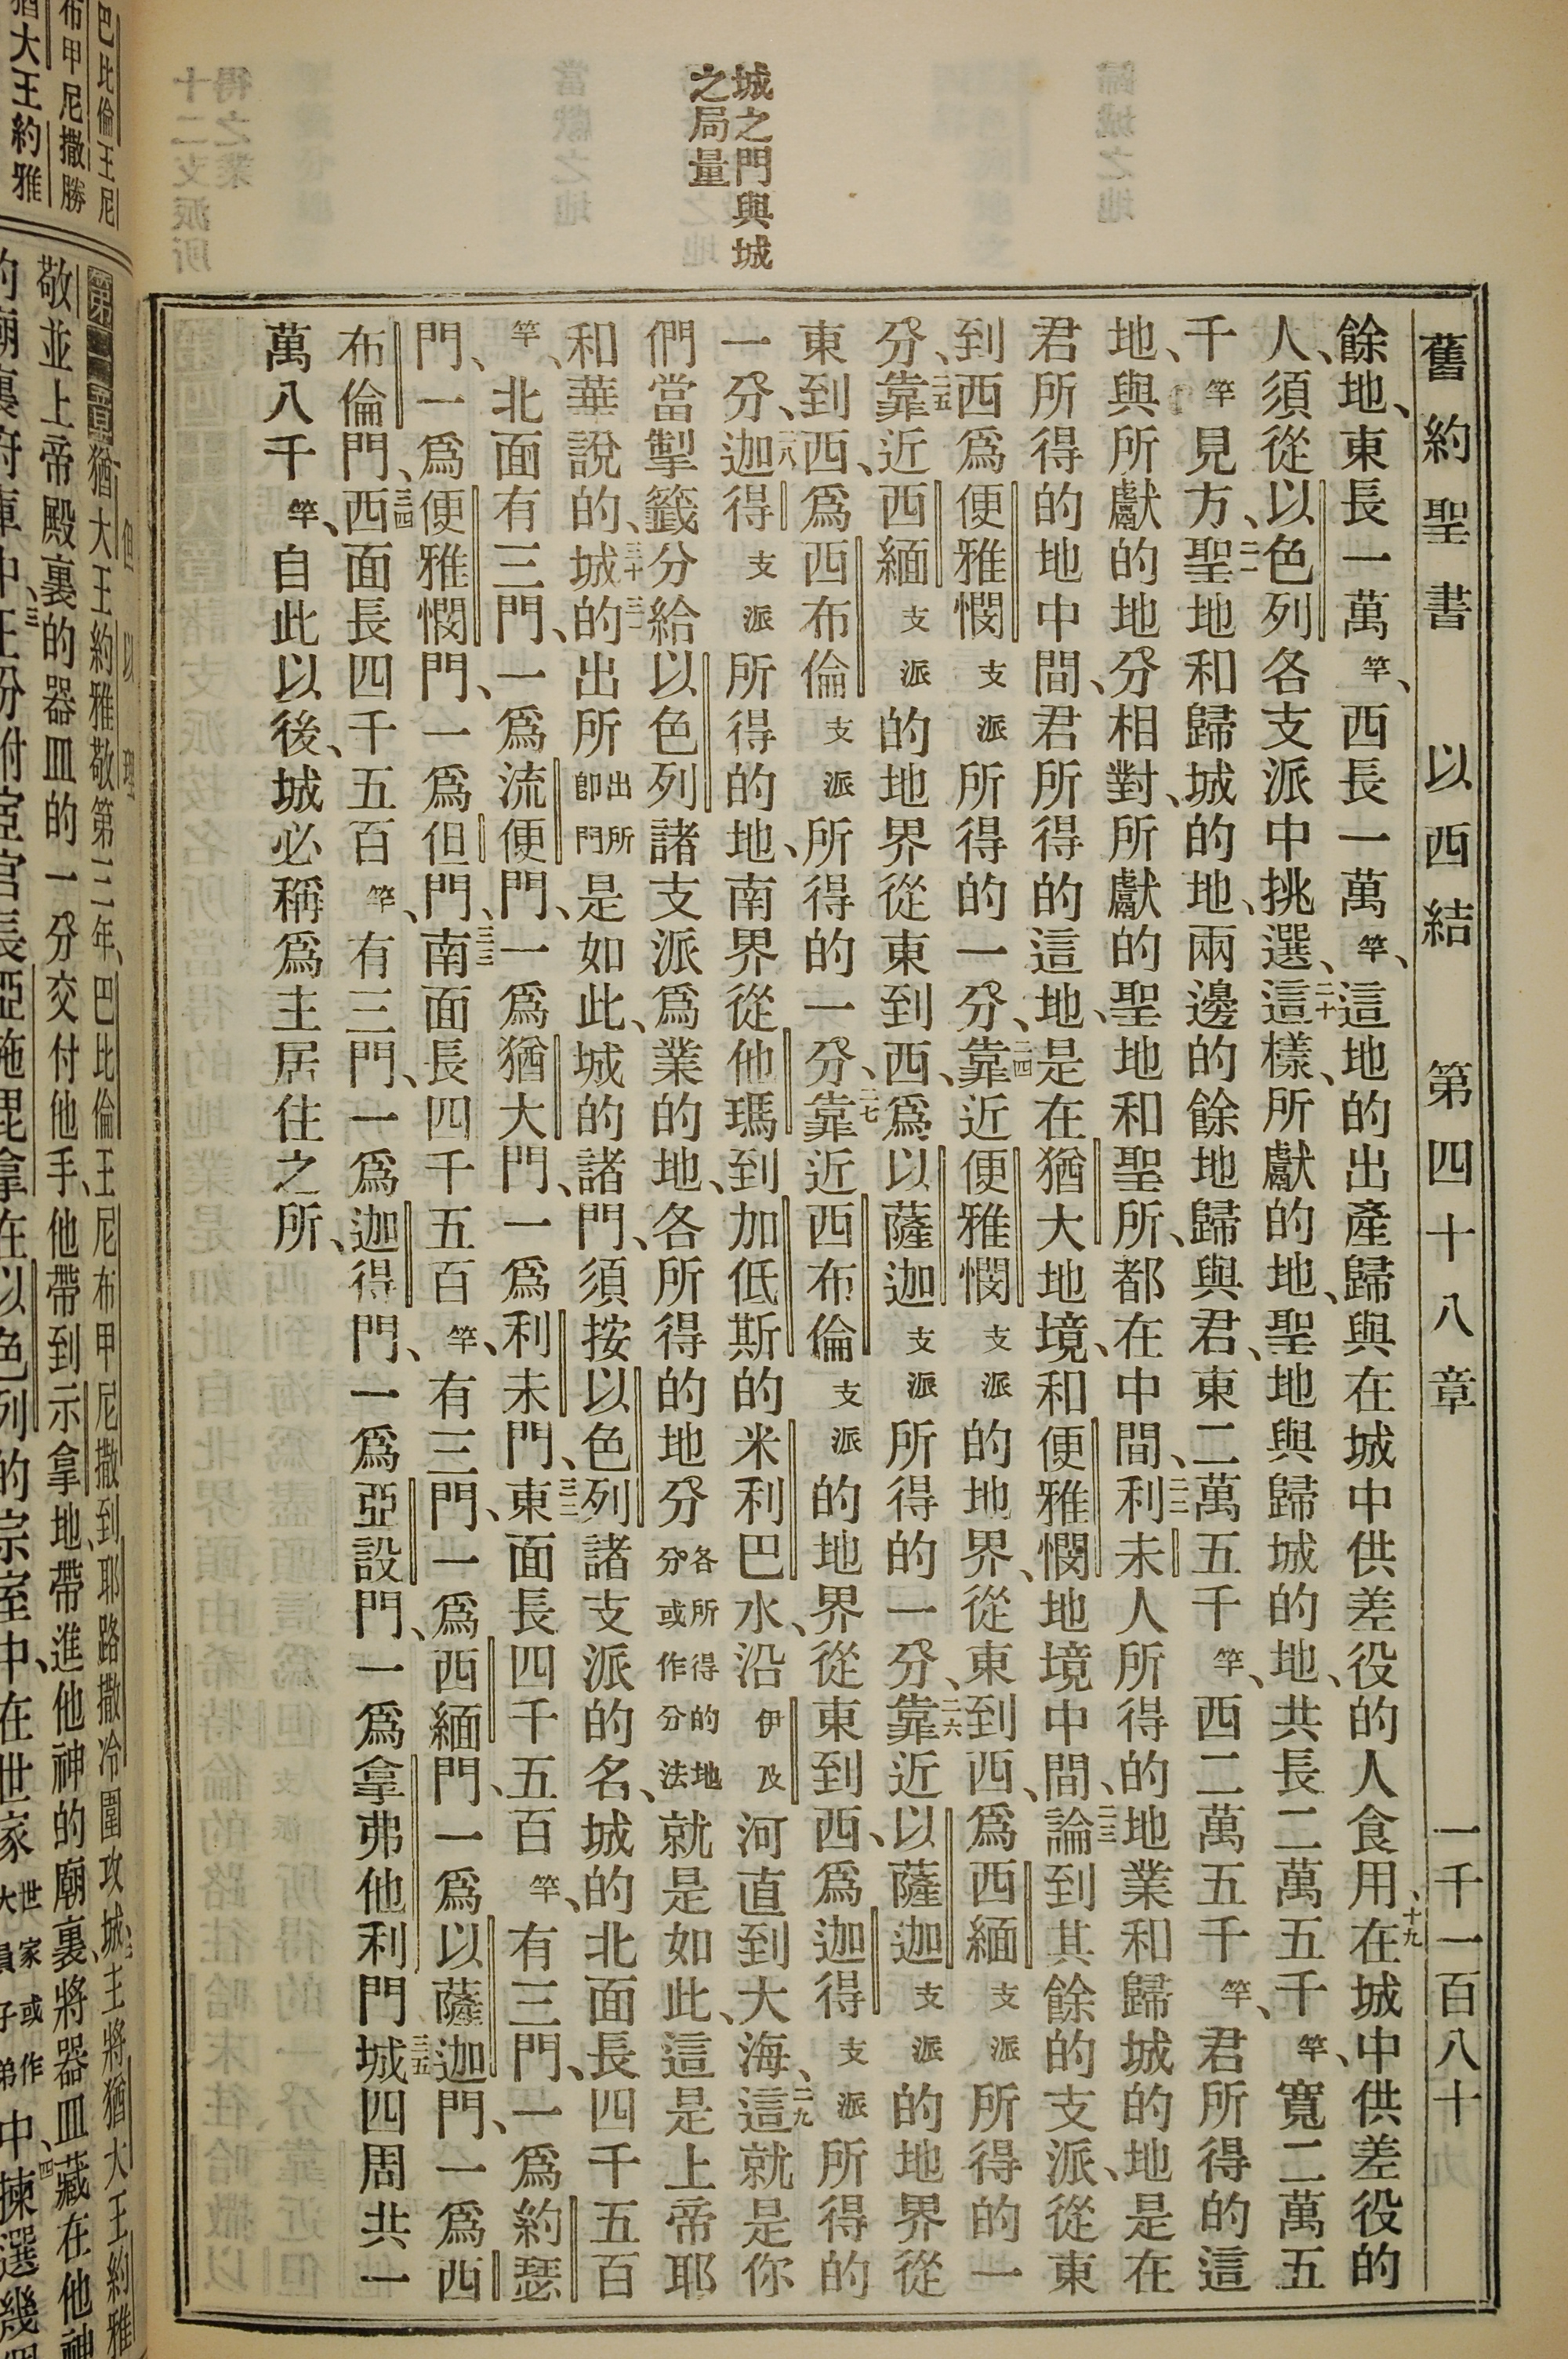 舊約聖書 以西結 第四十八章 一千一百八十
城之門與城
之局量
餘地、東長一萬竿、西長一萬竿、這地的出產歸與在城中供差役的人食用、十九在城中供差役的
人、須從以色列各支派中挑選、二十這樣、所獻的地、聖地與歸城的地、共長二萬五千竿、寬二萬五
千竿見方、二一聖地和歸城的地、兩邊的餘地歸與君、東二萬五千竿、西二萬五千竿、君所得的這
地、與所獻的地分相對、所獻的聖地和聖所、都在中間、二二利未人所得的地業和歸城的地是在
君所得的地中間、君所得的這地、是在猶大地境、和便雅憫地境中間、二三論到其餘的支派、從東
到西爲便雅憫支派所得的一分、二四靠近便雅憫支派的地界、從東到西、爲西緬支派所得的一
分、二五靠近西緬支派的地界從東到西、爲以薩迦支派所得的一分、二六靠近以薩迦支派的地界從
東到西、爲西布倫支派所得的一分、二七靠近西布倫支派的地界從東到西、爲迦得支派所得的
一分、二八迦得支派所得的地、南界從他瑪到加低斯的米利巴水、沿伊及河直到大海、二九這就是你
們當掣籤分給以色列諸支派爲業的地、各所得的地分各所得的地分或作分法就是如此、這是上帝耶
和華說的、三十城的三一出所出所卽門是如此、城的諸門、須按以色列諸支派的名、城的北面長四千五百
竿、北面有三門、一爲流便門、一爲猶大門、一爲利未門、三二東面長四千五百竿、有三門、一爲約瑟
門、一爲便雅憫門、一爲但門、三三南面長四千五百竿、有三門、一爲西緬門、一爲以薩迦門、一爲西
布倫門、三四西面長四千五百竿、有三門、一爲迦得門、一爲亞設門、一爲拿弗他利門三五城四周共一
萬八千竿、自此以後、城必稱爲主居住之所、
猶大王約雅敬第三年、巴比倫王尼布甲尼撒到耶路撒冷圍攻城、二主將猶大王約雅
敬並上帝殿裏的器皿的一分交付他手、他帶到示拿地、帶進他神的廟裏、將器皿藏在他神